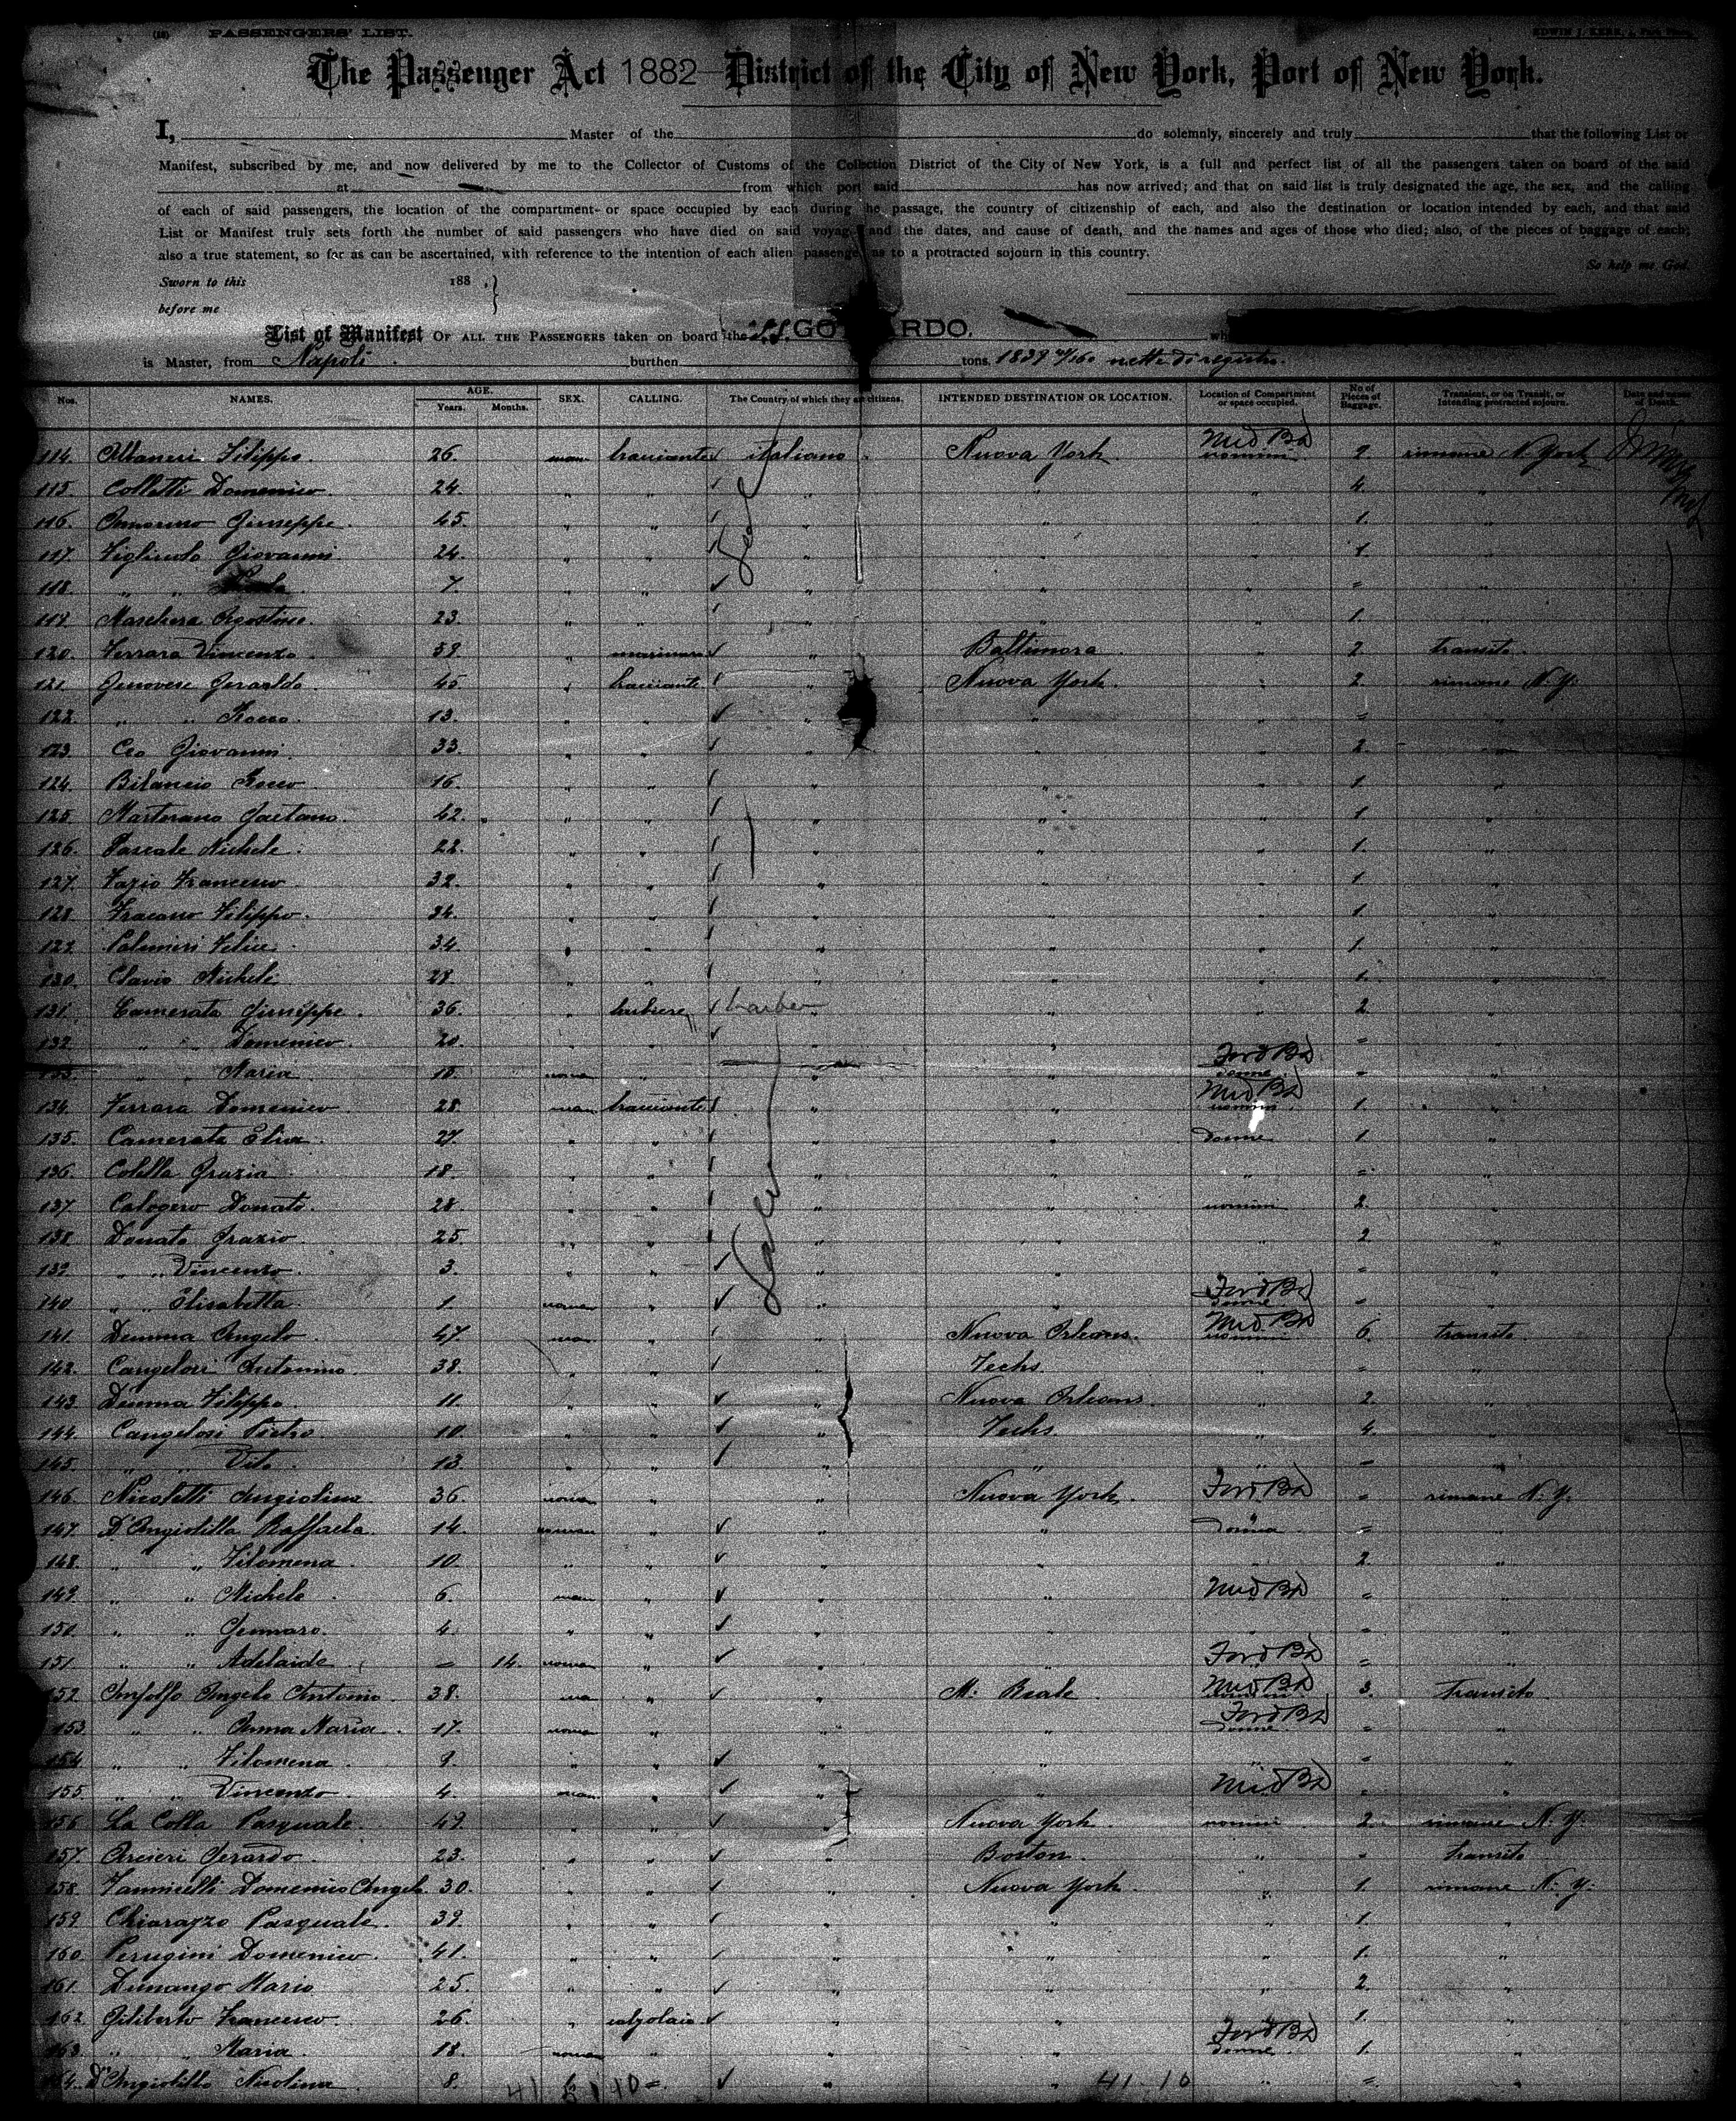 PASSENGERS' LIST.
The Passenger Act 1882 District of the City of New York, Port of New York.
I, Master of the do solemnly, sincerely and truly that the following List or
Manifest, subscribed by me, and now delivered by me to the Collector of Customs of the Collection District of the City of New York, is a full and perfect list of all the passengers taken on board of the said
at from which port said has now arrived; and that on said list is truly designated the age, the sex, and the calling
of each of said passengers, the location of the compartment or space occupied by each during the passage, the country of citizenship of each, and also the destination or location intended by each, and that said
List or Manifest truly sets forth the number of said passengers who have died on said voyage, and the dates, and cause of death, and the names and ages of those who died; also, of the pieces of baggage of each;
also a true statement, so far as can be ascertained, with reference to the intention of each alien passenger, as to a protracted sojourn in this country.
So help me God.
Sworn to this 188 ,
before me
List of Manifest OF ALL THE PASSENGERS taken on board the S.S. GO RDO. wh
is Master, from Napoli burthen tons 1839 nette di registro.
Nos. NAMES. AGE. Years. Months. SEX. CALLING. The Country of which they are citizens. INTENDED DESTINATION OR LOCATION. Location of Compartment or space occupied. No of Pieces of Baggage. Transient, or on Transit, or Intending protracted sojourn. Date and cause of Death.
114. Albaneri Filippo. 26. man bracciante italiano Nuova York Mid Bd uomini 2 rimane N. York
115. Colletti Domenico. 24. " " " " " 4. "
116. Giuseppe. 45. " " " " " 1. "
117. Giovanni 24. " " " " " 1. "
118. " " 7. " " " " " = "
119. Marchera Agostino. 23. " " " " " 1. "
120. Ferrara Vincenzo 59. " marinaro " Baltimora " 2 transito
121. Genovese Geraldo. 45 " bracciante " Nuova York " 2. rimane N.Y.
122. " " Rocco. 13. " " " " " = "
123. Ceo Giovanni. 33. " " " " " 2 "
124. Bilancio Rocco 16. " " " " " 1. "
125. Martorano Gaetano. 42. " " " " " 1 "
126. Pascale Michele. 22. " " " " " 1. "
127. Fazio Francesco 32. " " " " " 1. "
128. Filippo. 24. " " " " " 1. "
129. Palmieri Felice. 34. " " " " " 1. "
130. Clavio Michele 28. " " " " " 1. "
131. Camerata Giuseppe. 36. " barbiere barber " " " 2 "
132. " " Domenico. 20. " " " " " = "
133. " " Maria 18. woman " " " Ford Bd donne = "
134. Ferrara Domenico. 28. man bracciante " " Mid Bd uomini 1. "
135. Camerata Elia. 27. " " " " donne 1. "
136. Colella Grazia 18. " " " " " = "
137. Calogero Donato. 28. " " " " uomini 2. "
138. Donato Grazio 25. " " " " " 2. "
139. " " Vincenzo. 3. " " " " " = "
140. " " Elisabetta. 1. woman " " " Ford Bd donne = "
141. Demma Angelo 47. man " " Nuova Orleans. Mid Bd uomini 6. transito
142. Cangelosi Antonino. 38. " " " Techs " = "
143. Demma Filippo. 11. " " " Nuova Orleans " 2. "
144. Cangelosi Pietro. 10. " " " Techs " 4. "
145. " " Vito. 13. " " " " " = "
146. Nicoletti Angiolina. 36. woman " " Nuova York. Ford Bd = rimane N.Y.
147. D'Angiolilla Raffaela. 14. woman " " " Donna = "
148. " " Filomena. 10. " " " " " 2. "
149. " " Michele. 6. man " " " Mid Bd = "
150. " " Gennaro. 4. " " " " " = "
151. " " Adelaide = 14. woman " " " Ford Bd = "
152. Angelo Antonio. 38. man " " M. Reale Mid Bd uomini 3. Transito
153. " " Anna Maria. 17. woman " " " Ford Bd donne = "
154. " " Filomena 9. " " " " " = "
155. " " Vincenzo 4. man " " " Mid Bd " "
156. La Colla Pasquale. 49. " " " Nuova York. uomini 2. rimane N.Y.
157. Arcieri Gerardo. 23. " " " Boston. " = transito
158. Iannicelli Domenico Angelo. 30. " " " Nuova York " 1. rimane N.Y.
159. Chiarazzo Pasquale. 39. " " " " " 1. "
160. Perugini Domenico. 41. " " " " " 1. "
161. Mario 25. " " " " " 2. "
162. Giliberto Francesco. 26. " calzolaio " " " 1. "
163. " " Maria. 18. woman " " " Ford Bd donne 1. "
164. D'Angiolillo Nicolina 8. " " " " " = "
41 10